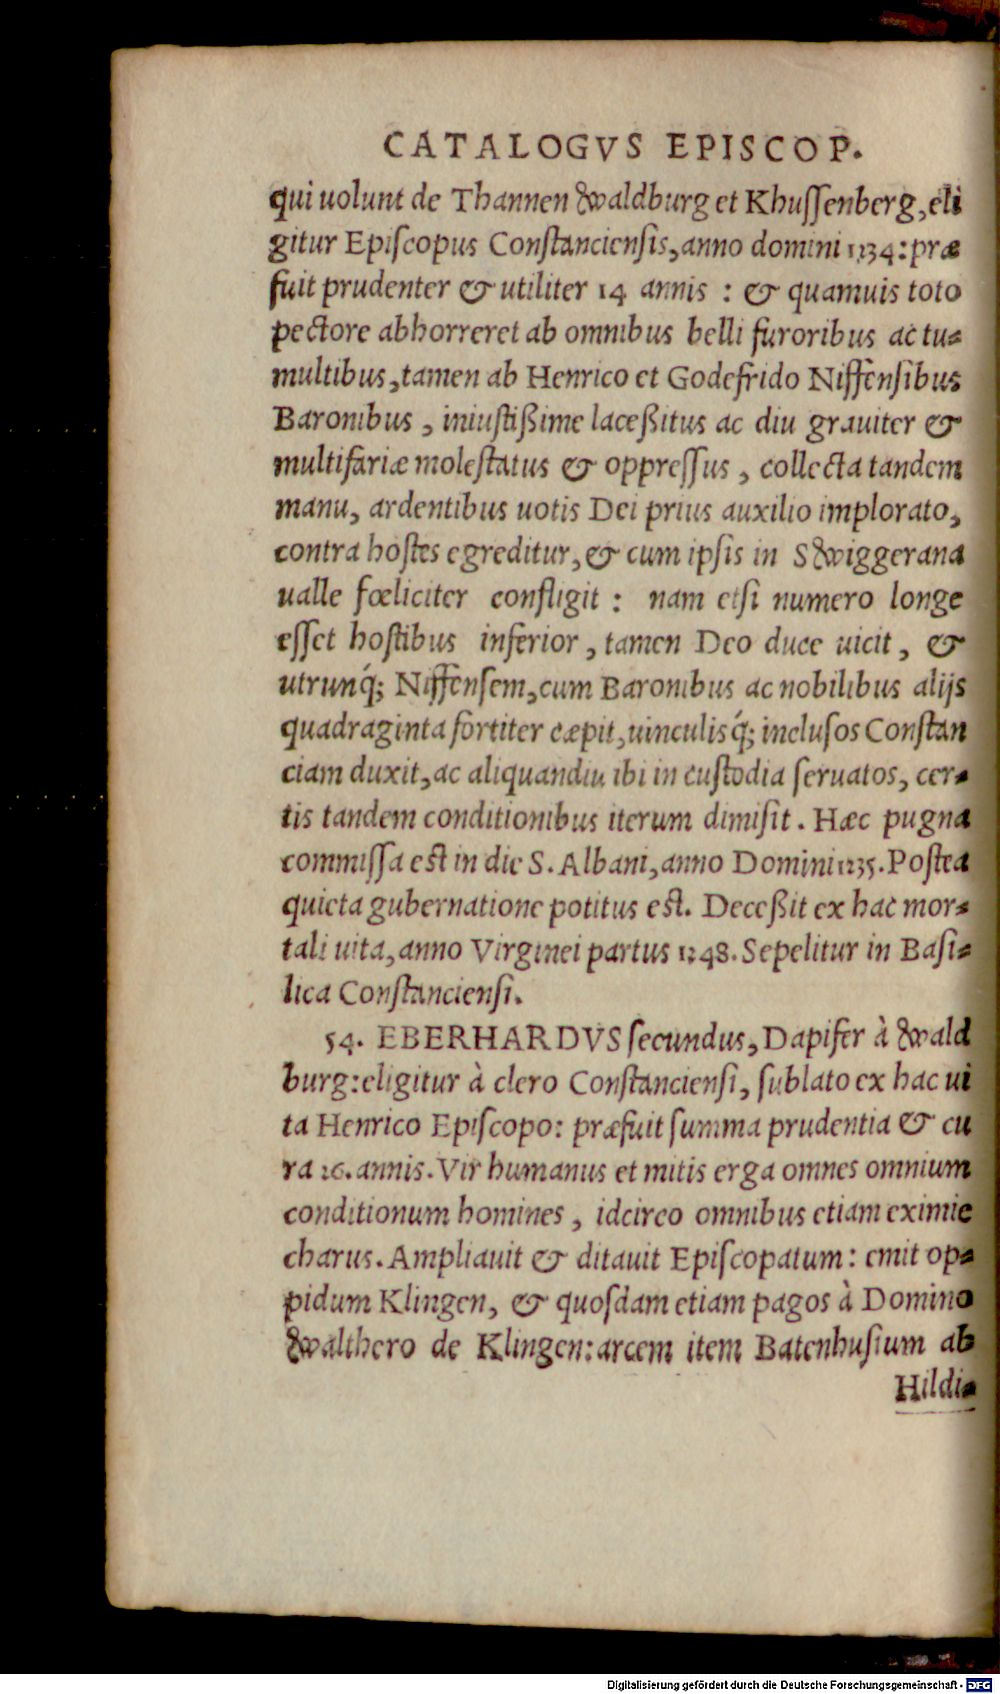 CATALOGVS EPISCOP.
qui uolunt de Thannen Waldburg et Khuſſenberg, eli
gitur Epiſcopus Conſtancienſis, anno domini 1234: præ
fuit prudenter & utiliter 14 annis : & quamuis toto
pectore abhorreret ab omnibus belli furoribus ac tu-
multibus, tamen ab Henrico et Godefrido Niffenſibus
Baronibus , iniuſtißime laceßitus ac diu grauiter &
multifariæ moleſtatus & oppreſſus , collecta tandem
manu, ardentibus uotis Dei prius auxilio implorato,
contra hoſtes egreditur, & cum ipſis in SWiggerana
ualle fœliciter confligit : nam etſi numero longe
eſſet hoſtibus inferior , tamen Deo duce uicit , &
utrunq́; Niffenſem, cum Baronibus ac nobilibus alijs
quadraginta fortiter cæpit, uinculisq́; incluſos Conſtan
ciam duxit, ac aliquandiu ibi in cuſtodia ſeruatos, cer-
tis tandem conditionibus iterum dimiſit. Hæc pugna
commiſſa eſt in die S. Albani, anno Domini 1235. Poſtea
quieta gubernatione potitus eſt. Deceßit ex hac mor-
tali uita, anno Virginei partus 1248. Sepelitur in Baſi-
lica Conſtancienſi.
54. EBERHARDVS ſecundus, Dapifer à Wald
burg: eligitur à clero Conſtancienſi, ſublato ex hac ui
ta Henrico Epiſcopo: præfuit ſumma prudentia & cu
ra 26. annis. Vir humanus et mitis erga omnes omnium
conditionum homines , idcirco omnibus etiam eximie
charus. Ampliauit & ditauit Epiſcopatum: emit op-
pidum Klingen, & quoſdam etiam pagos à Domino
Walthero de Klingen: arcem item Batenhuſium ab
Hildi-
Digitalisierung gefördert durch die Deutsche Forschungsgemeinschaft - DFG